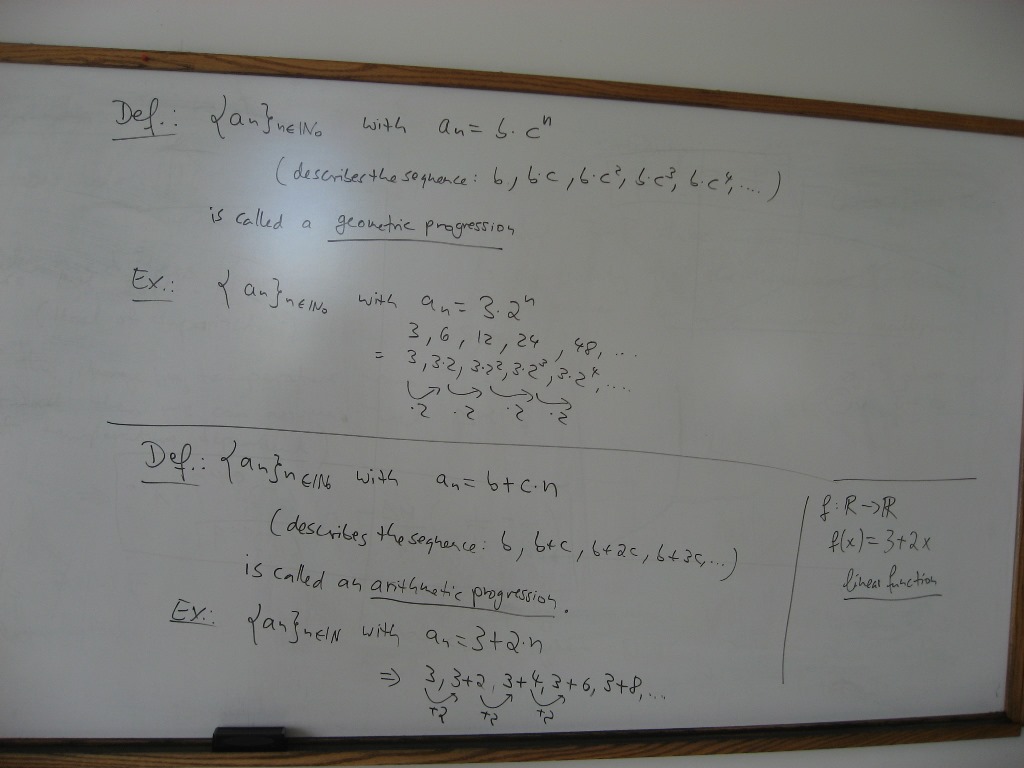 Def.: {an}n∈ℕ₀ with an = b·cⁿ
(describes the sequence: b, b·c, b·c², b·c³, b·c⁴, ....)
is called a geometric progression
Ex.: {an}n∈ℕ₀ with an = 3·2ⁿ
3, 6, 12, 24, 48, ...
= 3, 3·2, 3·2², 3·2³, 3·2⁴, ....
·2 ·2 ·2 ·2
Def.: {an}n∈ℕ₀ with an = b+c·n
(describes the sequence: b, b+c, b+2c, b+3c, ...)
is called an arithmetic progression.
Ex.: {an}n∈ℕ with an = 3+2·n
⇒ 3, 3+2, 3+4, 3+6, 3+8, ...
+2 +2 +2
f: ℝ→ℝ
f(x) = 3+2x
linear function